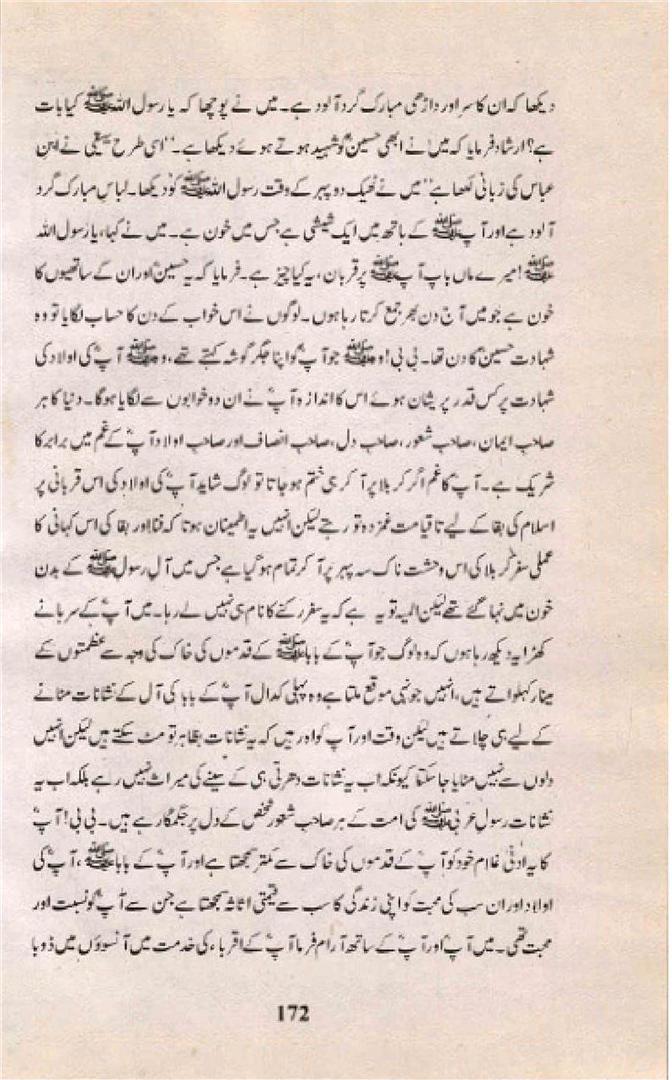 دیکھا کہ ان کا سر اور داڑھی مبارک گرد آلود ہے۔ میں نے پوچھا کہ یا رسول اللہ ﷺ کیا بات
ہے؟ ارشاد فرمایا کہ میں نے ابھی حسینؑ کو شہید ہوتے ہوئے دیکھا ہے۔‘‘ اسی طرح بیہقی نے ابن
عباس کی زبانی لکھا ہے ’’میں نے ٹھیک دوپہر کے وقت رسول اللہ ﷺ کو دیکھا۔ لباس مبارک گرد
آلود ہے اور آپ ﷺ کے ہاتھ میں ایک شیشی ہے جس میں خون ہے۔ میں نے کہا، یا رسول اللہ
ﷺ! میرے ماں باپ آپ ﷺ پر قربان، یہ کیا چیز ہے۔ فرمایا کہ یہ حسینؑ اور ان کے ساتھیوں کا
خون ہے جو میں آج دن بھر جمع کرتا رہا ہوں۔ لوگوں نے اس خواب کے دن کا حساب لگایا تو وہ
شہادت حسینؑ کا دن تھا۔ بی بی! وہ ﷺ جو آپؑ کو اپنا جگر گوشہ کہتے تھے، وہ ﷺ آپؑ کی اولاد کی
شہادت پر کس قدر پریشان ہوئے اس کا اندازہ آپؑ نے ان دو خوابوں سے لگایا ہوگا۔ دنیا کا ہر
صاحب ایمان، صاحب شعور، صاحب دل، صاحب انصاف اور صاحب اولاد آپؑ کے غم میں برابر کا
شریک ہے۔ آپؑ کا غم اگر کربلا پر آ کر ہی ختم ہو جاتا تو لوگ شاید آپؑ کی اولاد کی اس قربانی پر
اسلام کی بقا کے لیے تاقیامت غمزدہ تو رہتے لیکن انہیں یہ اطمینان ہوتا کہ فنا اور بقا کی اس کہانی کا
عملی سفر کربلا کی اس وحشت ناک سہ پہر پر آ کر تمام ہو گیا ہے جس میں آلِ رسول ﷺ کے بدن
خون میں نہا گئے تھے لیکن المیہ تو یہ ہے کہ یہ سفر رکنے کا نام ہی نہیں لے رہا۔ میں آپؑ کے سرہانے
کھڑا یہ دیکھ رہا ہوں کہ وہ لوگ جو آپؑ کے بابا ﷺ کے قدموں کی خاک کی وجہ سے عظمتوں کے
مینار کہلواتے ہیں، انہیں جونہی موقع ملتا ہے وہ پہلی کدال آپؑ کے بابا کی آل کے نشانات مٹانے
کے لیے ہی چلاتے ہیں لیکن وقت اور آپ گواہ رہیں کہ یہ نشانات بظاہر تو مٹ سکتے ہیں لیکن انہیں
دلوں سے نہیں مٹایا جا سکتا کیونکہ اب یہ نشانات دھرتی ہی کے سینے کی میراث نہیں رہے بلکہ اب یہ
نشانات رسول عربی ﷺ کی امت کے ہر صاحب شعور شخص کے دل پر جگمگا رہے ہیں۔ بی بی! آپؑ
کا یہ ادنیٰ غلام خود کو آپؑ کے قدموں کی خاک سے کمتر سمجھتا ہے اور آپؑ کے بابا ﷺ، آپؑ کی
اولاد اور ان سب کی محبت کو اپنی زندگی کا سب سے قیمتی اثاثہ سمجھتا ہے جن سے آپؑ کو نسبت اور
محبت تھی۔ میں آپؑ اور آپؑ کے ساتھ آرام فرما آپؑ کے اقرباء کی خدمت میں آنسوؤں میں ڈوبا
172